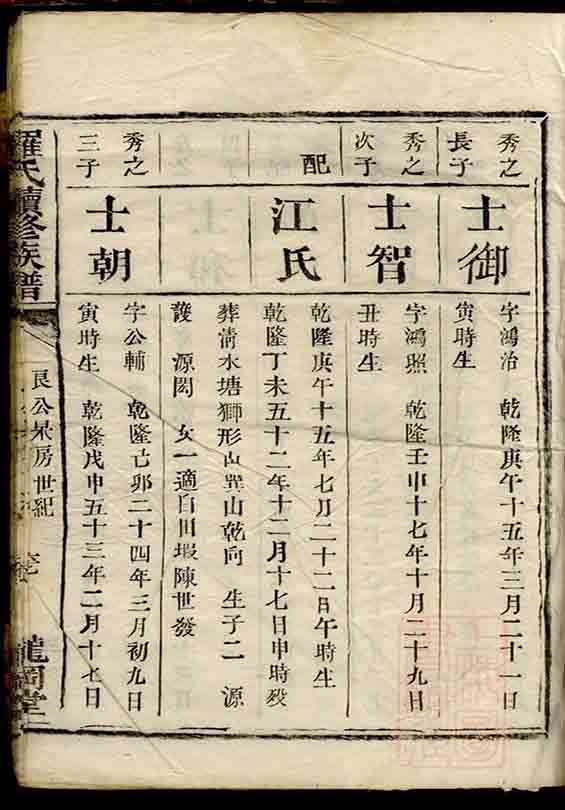 秀之
長子
士御
字鴻治 乾隆庚午十五年三月二十一日
寅時生
秀之
次子
士智
字鴻照 乾隆壬申十七年十月二十九日
丑時生
配
江氏
乾隆庚午十五年七月二十二日午時生
乾隆丁未五十二年十二月十七日申時歿
葬清水塘獅形山巽山乾向 生子二 源
護 源閎 女一適白田塅陳世發
秀之
三子
士朝
字公輔 乾隆己卯二十四年三月初九日
寅時生 乾隆戊申五十三年二月十七日
羅氏續修族譜
良公杲房世紀
龍岡堂